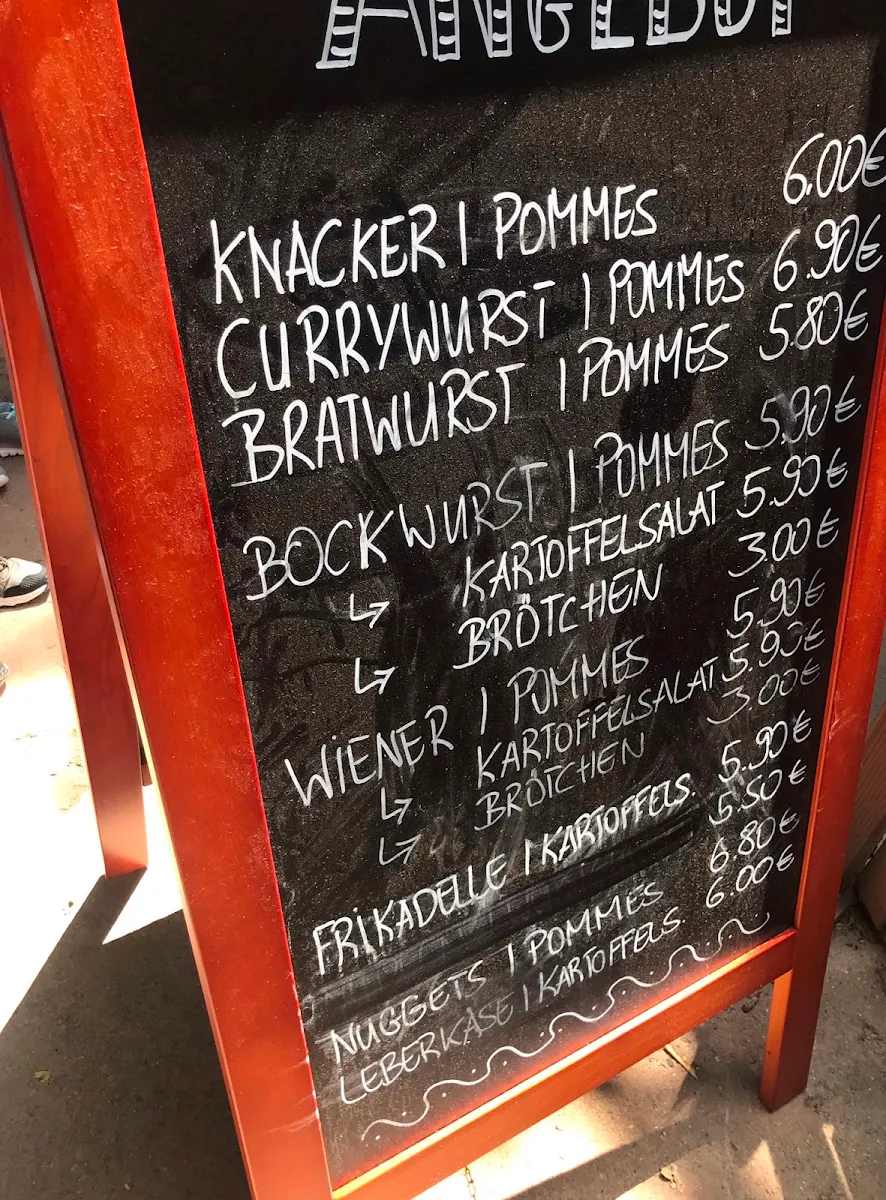 ANGEBOT
KNACKER | POMMES 6.00€
CURRYWURST | POMMES 6.90€
BRATWURST | POMMES 5.80€
BOCKWURST | POMMES 5.90€
↳ KARTOFFELSALAT 5.90€
↳ BRÖTCHEN 3.00€
WIENER | POMMES 5.90€
↳ KARTOFFELSALAT 5.90€
↳ BRÖTCHEN 3.00€
FRIKADELLE | KARTOFFELS. 5.90€
5.50€
NUGGETS | POMMES 6.80€
LEBERKÄSE | KARTOFFELS. 6.00€